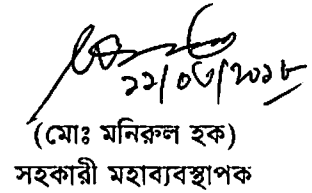 ২২/০৫/২০১৮
(মোঃ মনিরুল হক)
সহকারী মহাব্যবস্থাপক